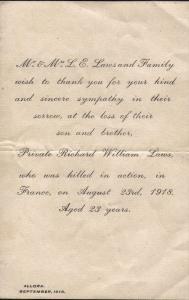 Mr. & Mrs. L. E. Laws and Family
wish to thank you for your kind
and sincere sympathy in their
sorrow, at the loss of their
son and brother,
Private Richard William Laws,
who was killed in action, in
France, on August 23rd, 1918.
Aged 23 years.
ALLORA,
SEPTEMBER, 1918.